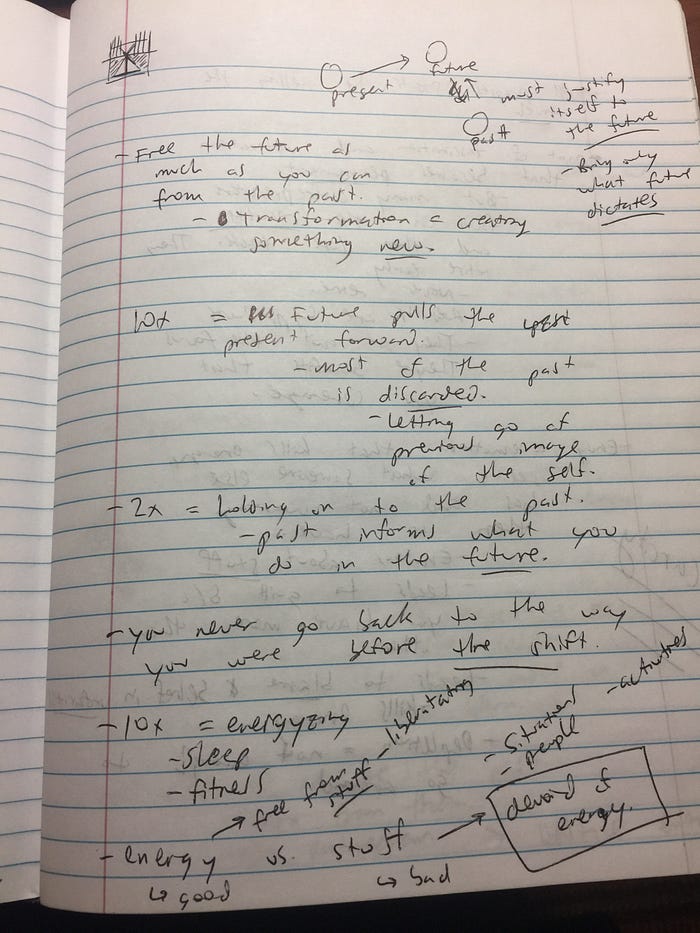 present
future
past
must justify
itself to
the future
- Bring only
what future
dictates
- Free the future as
much as you can
from the past.
- Transformation = creating
something new.
10x = Future pulls the
present forward.
- most of the past
is discarded.
- letting go of
previous image
of the self.
- 2x = holding on to the past.
- past informs what you
do in the future.
- you never go back to the way
you were before the shift.
- 10x = energyzing
- sleep
- fitness
→ free from stuff - liberatating
- situations - activities
- people
- energy vs. stuff → devoid of
energy.
↳ good
↳ bad